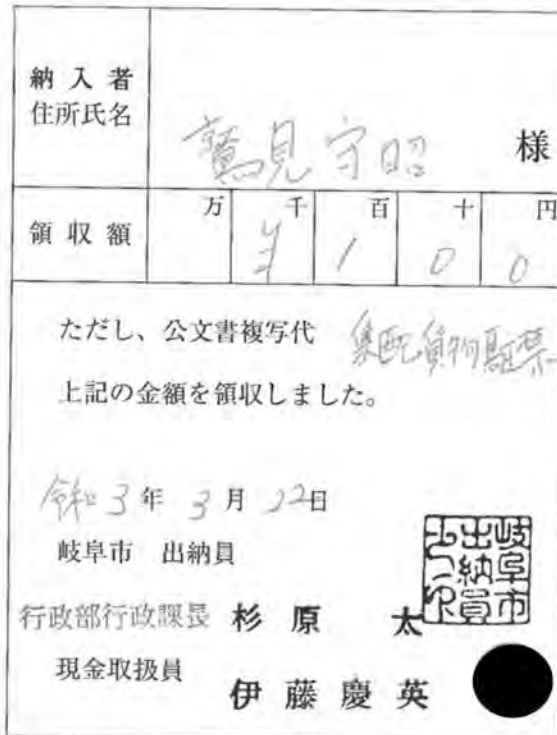 納入者
住所氏名
鷲見守昭 様
領収額 万 千 百 十 円
¥ 1 0 0
ただし、公文書複写代 集配貨物
上記の金額を領収しました。
令和 3 年 3 月 22 日
岐阜市 出納員
行政部行政課長 杉原 太
現金取扱員
伊藤慶英
岐阜市
出納員